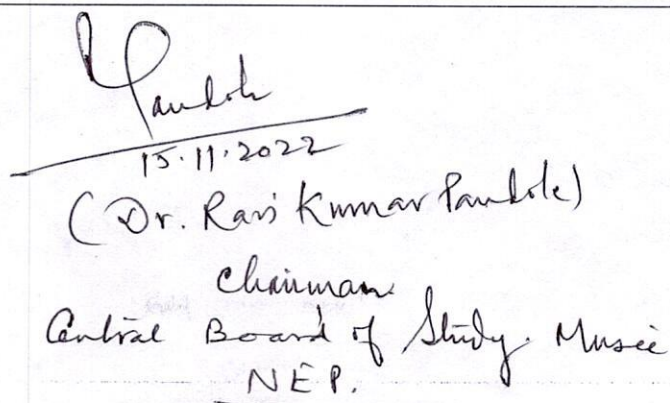 Pandole
15.11.2022
(Dr. Ravi Kumar Pandole)
Chairman
Central Board of Study. Music
NEP.